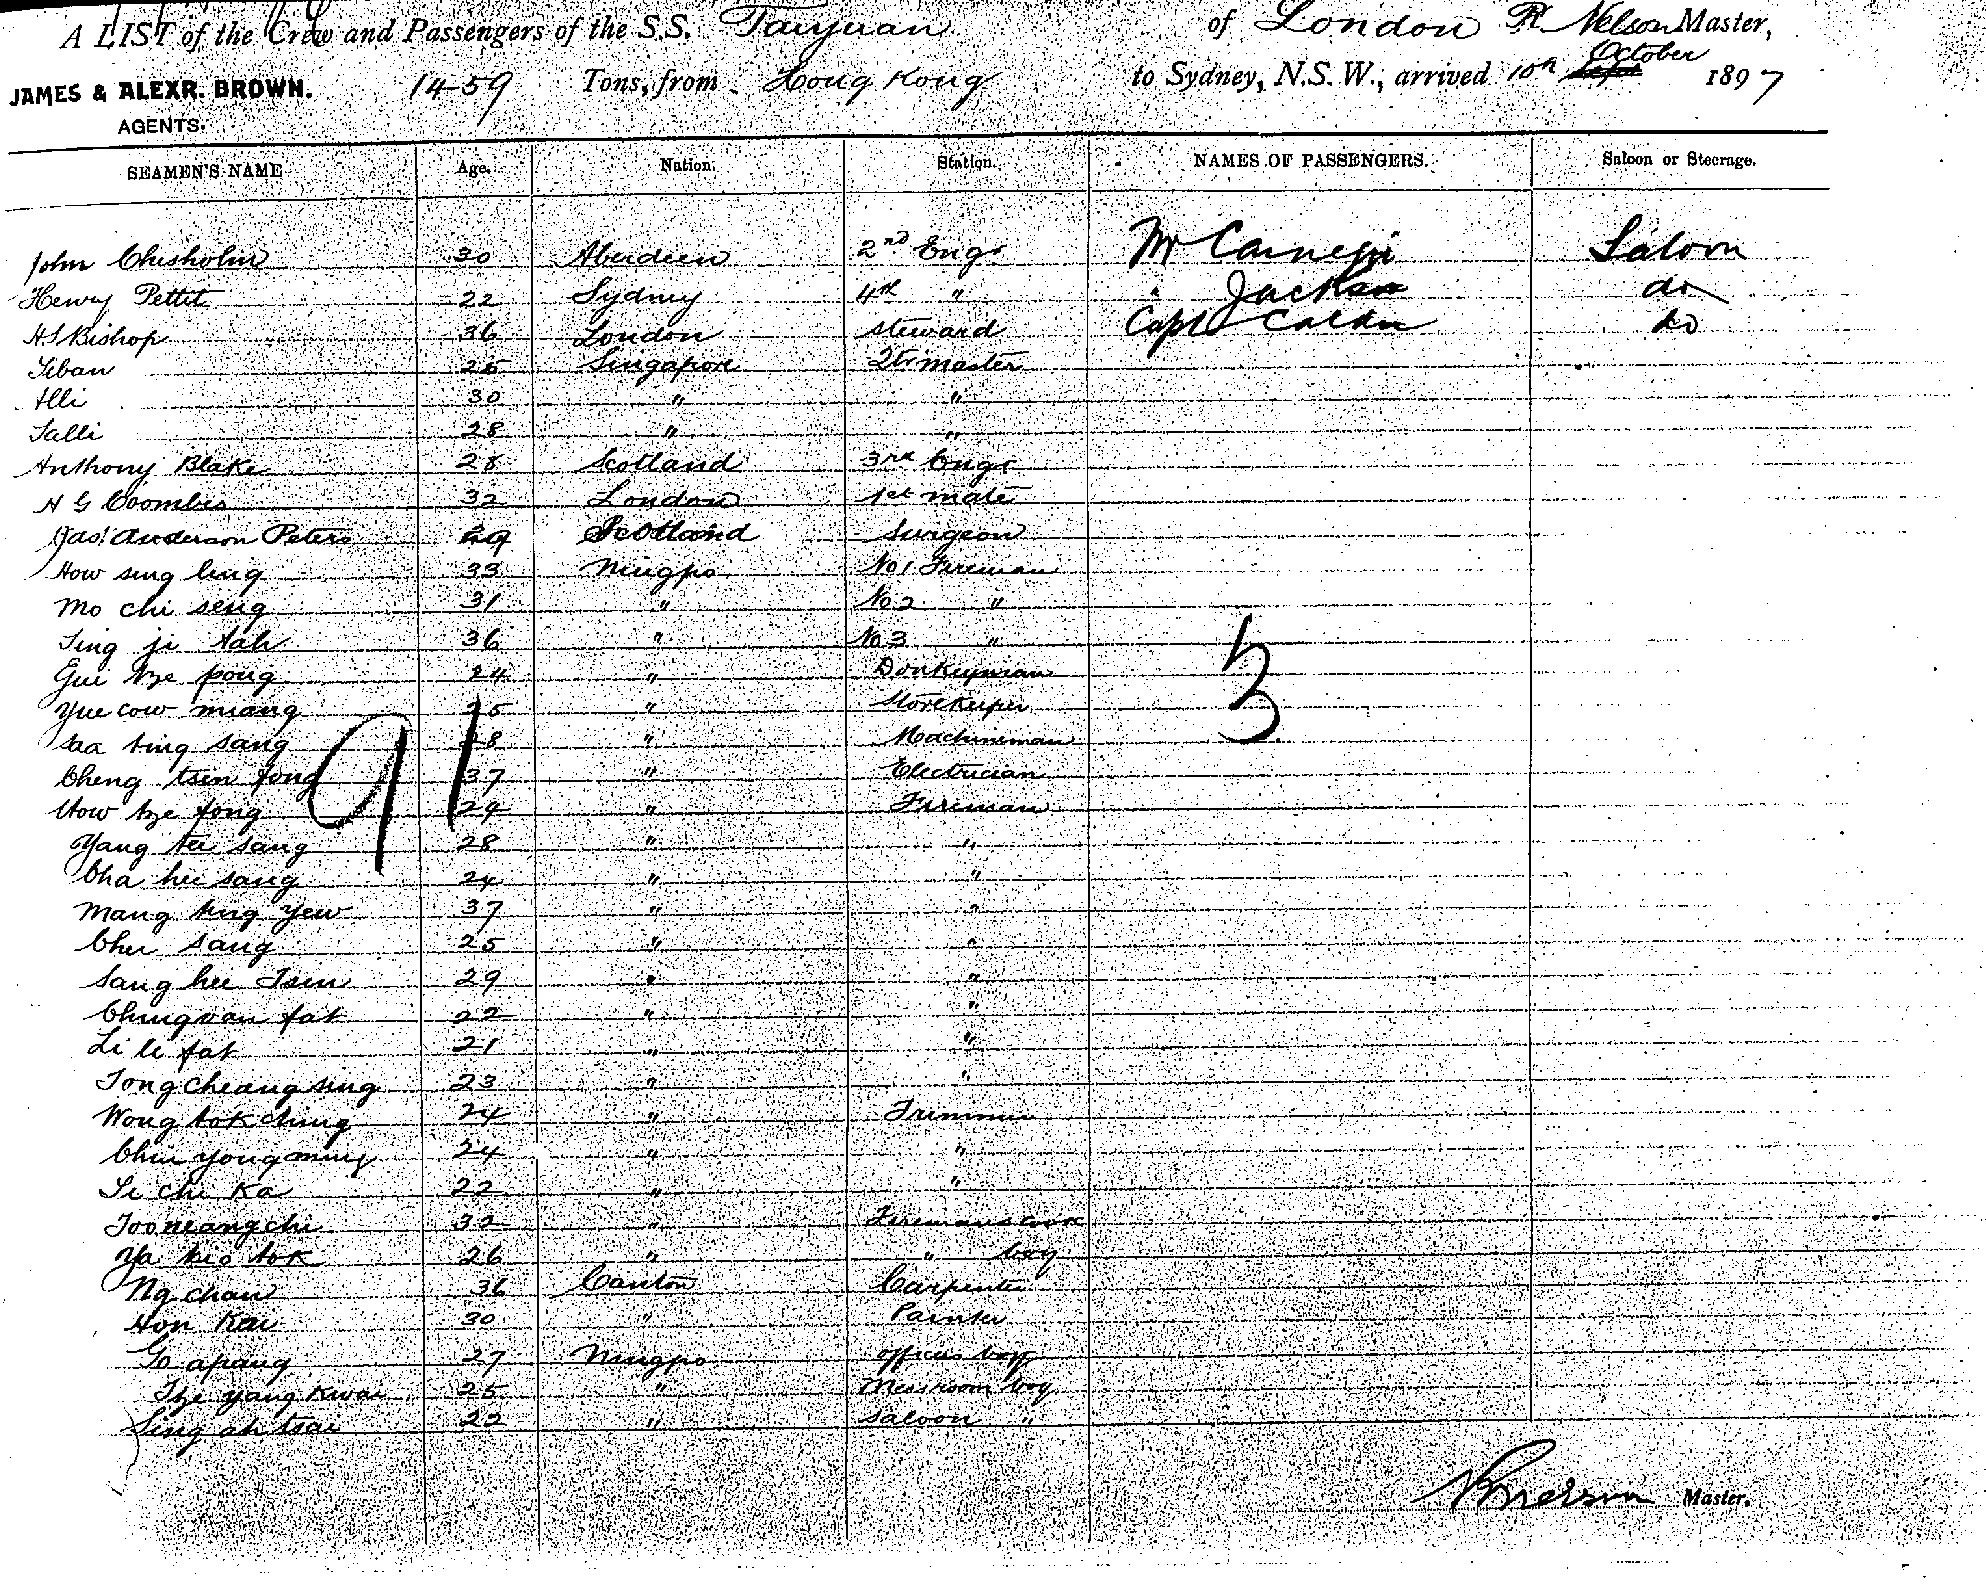 A LIST of the Crew and Passengers of the S.S. Taiyuan of London R Nelson Master,
JAMES & ALEXR. BROWN. 1459 Tons, from Hong Kong to Sydney, N.S.W., arrived 10th Sept October 1897
AGENTS.
SEAMEN'S NAME Age. Nation. Station. NAMES OF PASSENGERS. Saloon or Steerage.
John Chisholm 30 Aberdeen 2nd Engr Mr Carnegie Saloon
Henry Pettit 22 Sydney 4th " " Jackson do
H S Bishop 36 London Steward Capt do
Seban 25 Singapore Qtr master
Alli 30 " "
Salli 28 " "
Anthony Blake 28 Scotland 3rd Engr
H G Coombes 32 London 1st mate
Jas Anderson Peters 29 Scotland Surgeon
How sing ling 33 Ningpo No 1 Fireman
Mo chi seng 31 " No 2 "
Ting ji tah 36 " No 3 "
Gui tze pong 24 " Donkeyman
Yue cow miang 25 " Storekeeper
Saa ting sang 28 " Machineman
Cheng tsin fong 37 " Electrician
How tze fong 29 " Fireman
Yang tei sang 28 " "
Cha hei sang 24 " "
Mang king yew 37 " "
Chu sang 25 " "
Sang hee Tsin 29 " "
Chingvan fat 22 " "
Li le fat 21 " "
Tong cheang sing 23 " "
Wong tok ching 24 " Trimmer
Chin yong ming 24 " "
Li chi ka 22 " "
Too neang chi 32 " Firemans cook
Ya kio tok 26 " " boy
Ng chan 36 Canton Carpenter
Hon Kai 30 " Painter
Go apang 27 Ningpo officers boy
Tze yang kwai 25 " Messroom boy
Sing ah tsai 22 " Saloon "
91
3
Master.